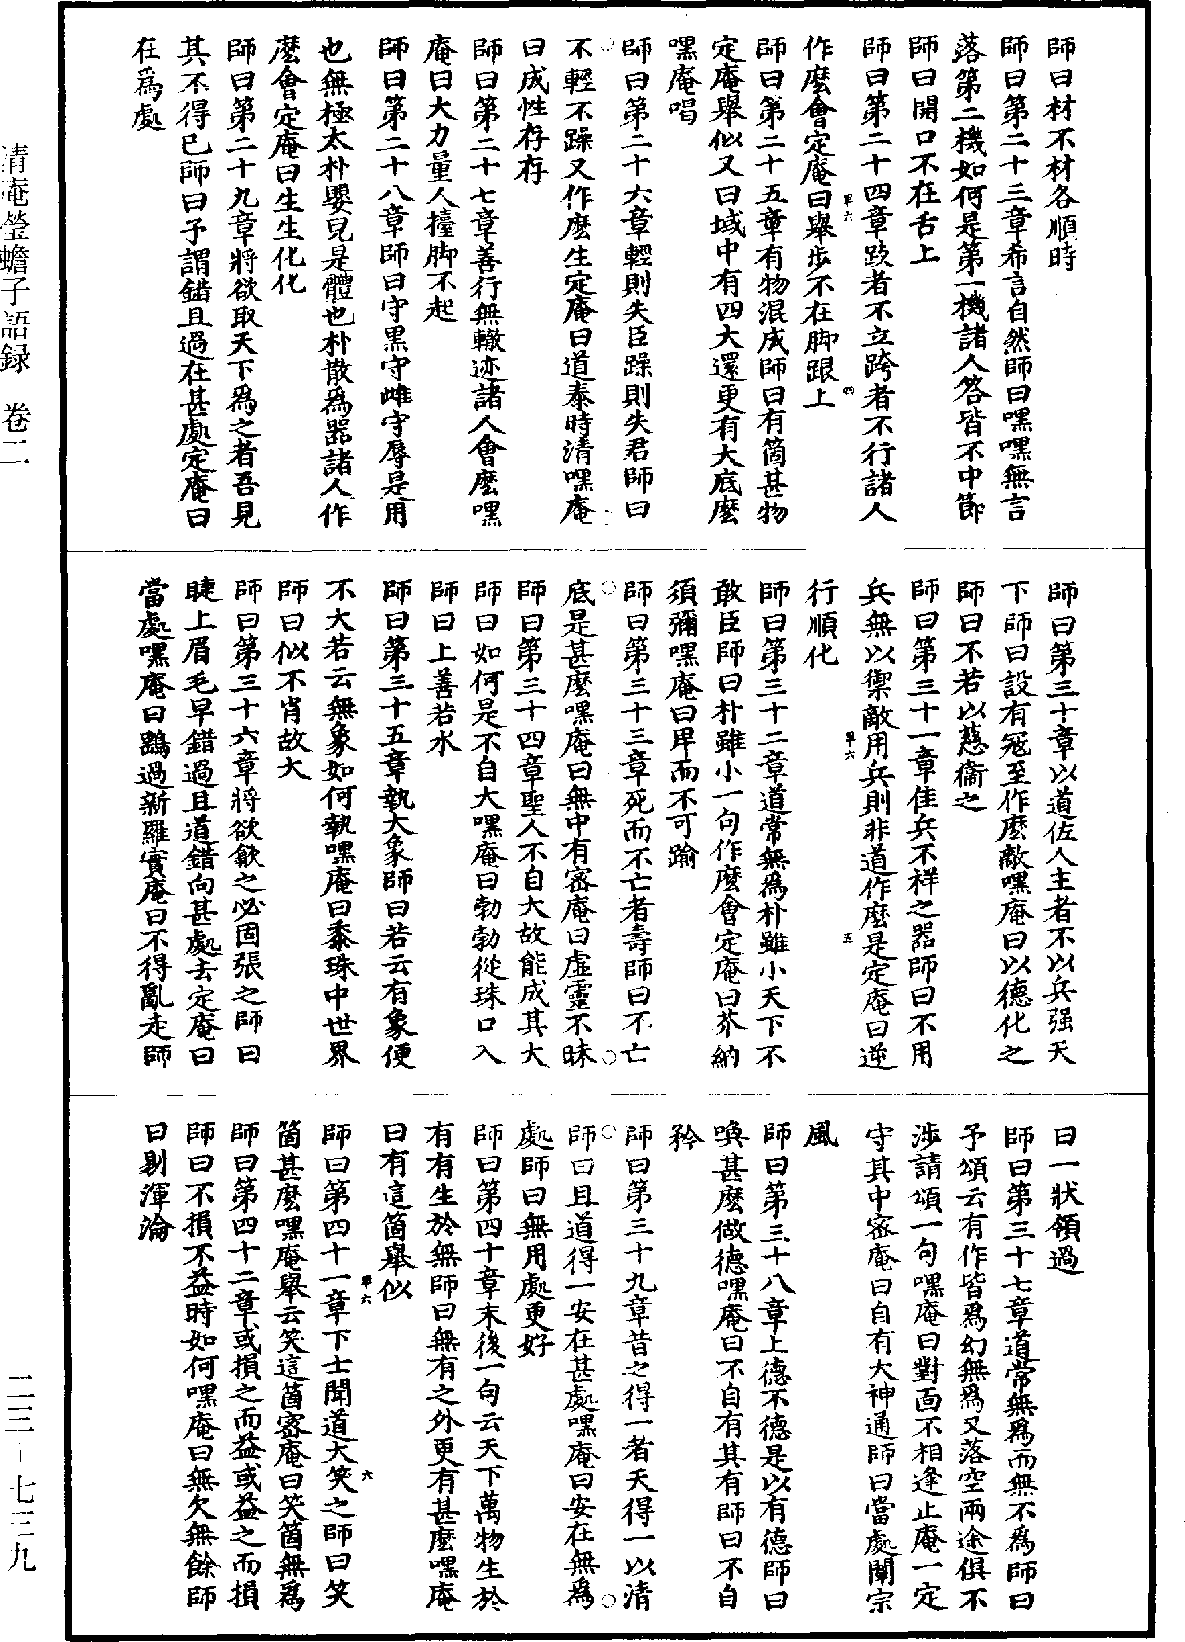 師曰材不材各順時
師曰第二十三章希言自然師曰嘿嘿無言
落第二機如何是第一機諸人答皆不中節
師曰開口不在舌上
師曰第二十四章跂者不立跨者不行諸人
作麼會定庵曰舉步不在脚跟上
師曰第二十五章有物混成師曰有箇甚物
定庵舉似又曰域中有四大還更有大底麼
嘿庵唱
師曰第二十六章輕則失臣躁則失君師曰
不輕不躁又作麼生定庵曰道泰時清嘿庵
曰成性存存
師曰第二十七章善行無轍迹諸人會麼嘿
庵曰大力量人擡脚不起
師曰第二十八章師曰守黑守雌守辱是用
也無極太朴嬰兒是體也朴散為器諸人作
麼會定庵曰生生化化
師曰第二十九章將欲取天下為之者吾見
其不得已師曰予謂錯且過在甚處定庵曰
在為處
師曰第三十章以道佐人主者不以兵强天
下師曰設有冦至作麼敵嘿庵曰以德化之
師曰不若以慈衞之
師曰第三十一章佳兵不祥之器師曰不用
兵無以禦敵用兵則非道作麼是定庵曰逆
行順化
師曰第三十二章道常無為朴雖小天下不
敢臣師曰朴雖小一句作麼會定庵曰芥納
須彌嘿庵曰卑而不可踰
師曰第三十三章死而不亡者壽師曰不亡
底是甚麼嘿庵曰無中有密庵曰虛靈不昧
師曰第三十四章聖人不自大故能成其大
師曰如何是不自大嘿庵曰勃勃從珠口入
師曰上善若水
師曰第三十五章執大象師曰若云有象便
不大若云無象如何執嘿庵曰黍珠中世界
師曰似不肖故大
師曰第三十六章將欲歙之必固張之師曰
睫上眉毛早錯過且道錯向甚處去定庵曰
當處嘿庵曰鷂過新羅實庵曰不得亂走師
曰一狀領過
師曰第三十七章道常無為而無不為師曰
予頌云有作皆為幻無為又落空兩途俱不
涉請頌一句嘿庵曰對面不相逢止庵一定
守其中密庵曰自有大神通師曰當處闡宗
風
師曰第三十八章上德不德是以有德師曰
喚甚麼做德嘿庵曰不自有其有師曰不自
矜
師曰第三十九章昔之得一者天得一以清
師曰且道得一安在甚處嘿庵曰安在無為
處師曰無用處更好
師曰第四十章末後一句云天下萬物生於
有有生於無師曰無有之外更有甚麼嘿庵
曰有這箇舉似
師曰第四十一章下士聞道大笑之師曰笑
箇甚麼嘿庵舉云笑這箇密庵曰笑箇無為
師曰第四十二章或損之而益或益之而損
師曰不損不益時如何嘿庵曰無欠無餘師
曰剔渾淪
單六
四
單六
五
單六
六
清庵瑩蟾子語録　卷二
二三－七三九